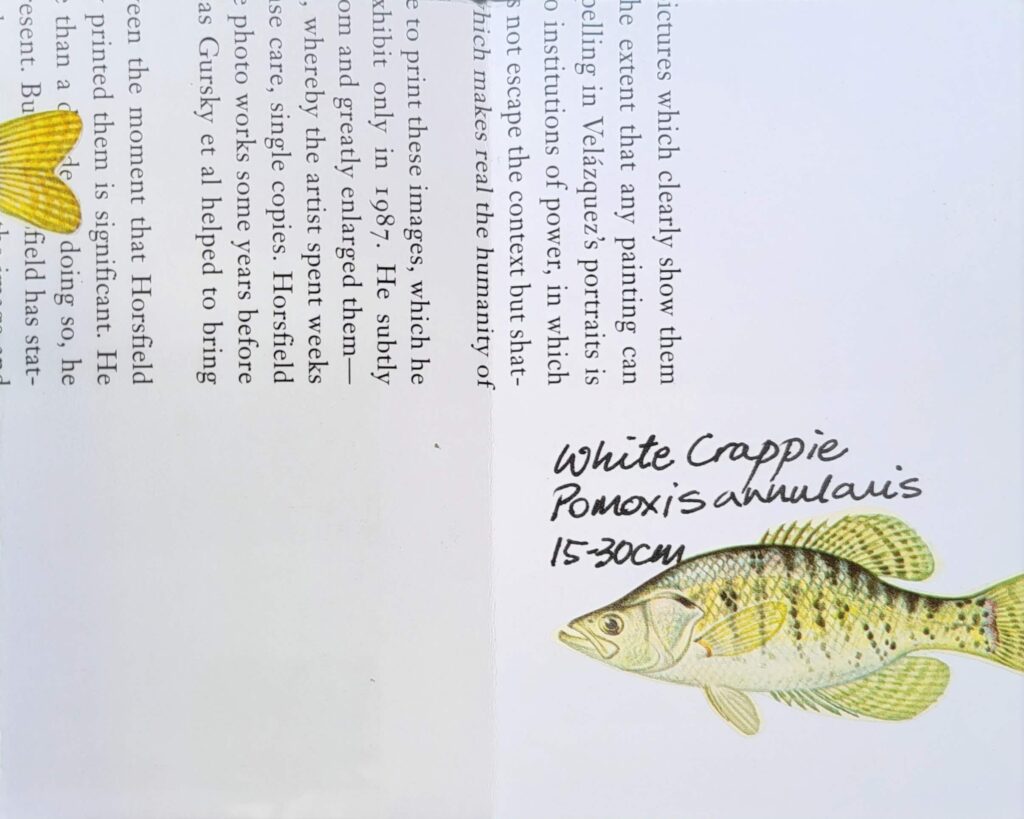 ictures which clearly show them
he extent that any painting can
pelling in Velázquez's portraits is
o institutions of power, in which
s not escape the context but shat-
which makes real the humanity of
e to print these images, which he
xhibit only in 1987. He subtly
om and greatly enlarged them—
, whereby the artist spent weeks
se care, single copies. Horsfield
e photo works some years before
as Gursky et al helped to bring
reen the moment that Horsfield
printed them is significant. He
than a de doing so, he
resent. Bu field has stat-
White Crappie
Pomoxis annularis
15-30cm